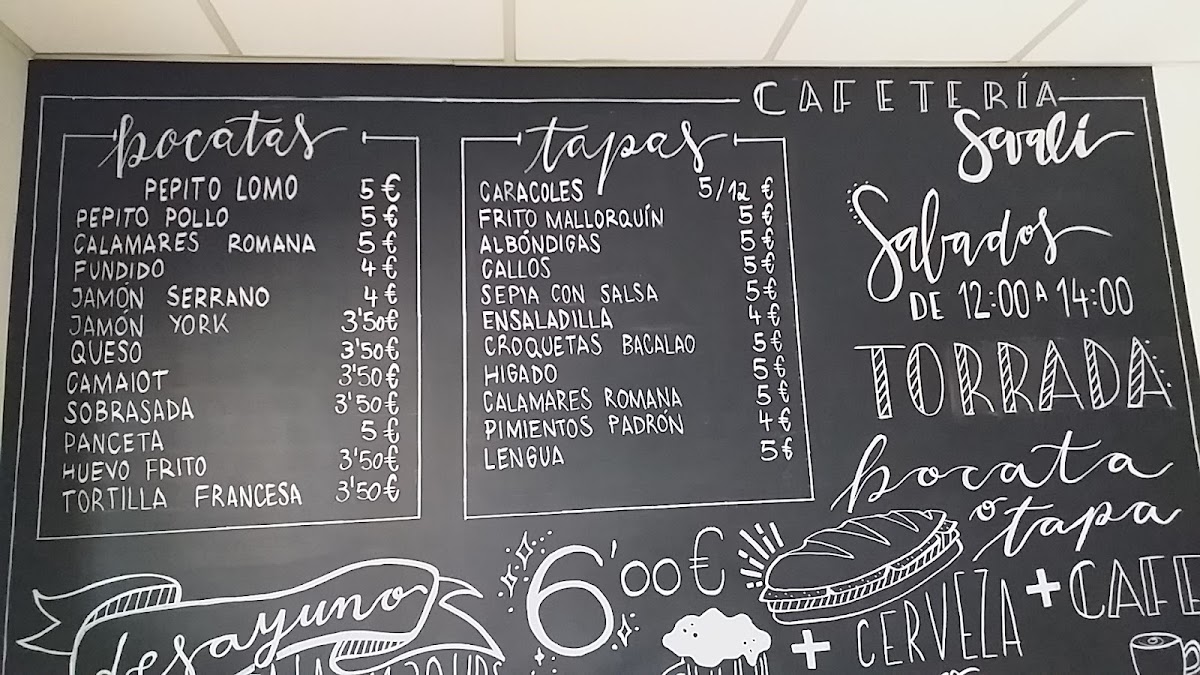 CAFETERÍA
Savali
bocatas
PEPITO LOMO 5€
PEPITO POLLO 5€
CALAMARES ROMANA 5€
FUNDIDO 4€
JAMÓN SERRANO 4€
JAMÓN YORK 3'50€
QUESO 3'50€
CAMAIOT 3'50€
SOBRASADA 3'50€
PANCETA 5€
HUEVO FRITO 3'50€
TORTILLA FRANCESA 3'50€
tapas
CARACOLES 5/12 €
FRITO MALLORQUÍN 5€
ALBÓNDIGAS 5€
CALLOS 5€
SEPIA CON SALSA 5€
ENSALADILLA 4€
CROQUETAS BACALAO 5€
HIGADO 5€
CALAMARES ROMANA 5€
PIMIENTOS PADRÓN 4€
LENGUA 5€
Sabados
DE 12:00 A 14:00
TORRADA
bocata
o tapa
+ CERVEZA + CAFE
6'00€
desayuno